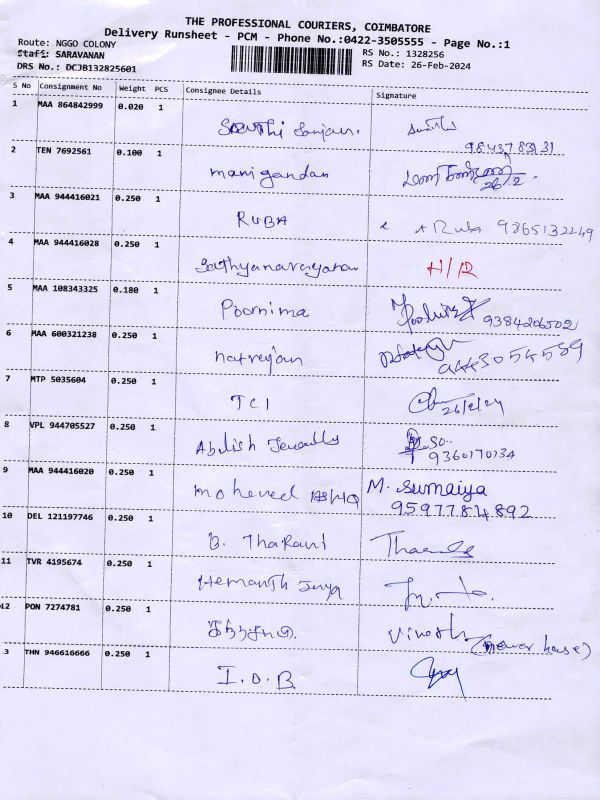 THE PROFESSIONAL COURIERS, COIMBATORE
Delivery Runsheet - PCM - Phone No.:0422-3505555 - Page No.:1
Route: NGGO COLONY
Staff: SARAVANAN
DRS No.: DCJB132825601
RS No.: 1328256
RS Date: 26-Feb-2024
S No Consignment No Weight PCS Consignee Details Signature
1 MAA 864842999 0.020 1
9843783131
2 TEN 7692561 0.100 1 manigandan
26/2
3 MAA 944416021 0.250 1 RUBA Ruba 9365132249
4 MAA 944416028 0.250 1 Sathyanarayanan H/12
5 MAA 108343325 0.180 1 Poornima 9384206502
6 MAA 600321238 0.250 1 natrejan 9443054589
7 MTP 5035604 0.250 1 TCI 26/2/24
8 VPL 944705527 0.250 1
9360170134
9 MAA 944416020 0.250 1 M. Sumaiya
9597784892
10 DEL 121197746 0.250 1 B. Tharani
11 TVR 4195674 0.250 1 Hemanth
12 PON 7274781 0.250 1 Vinoth
3 THN 946616666 0.250 1 I.O.B